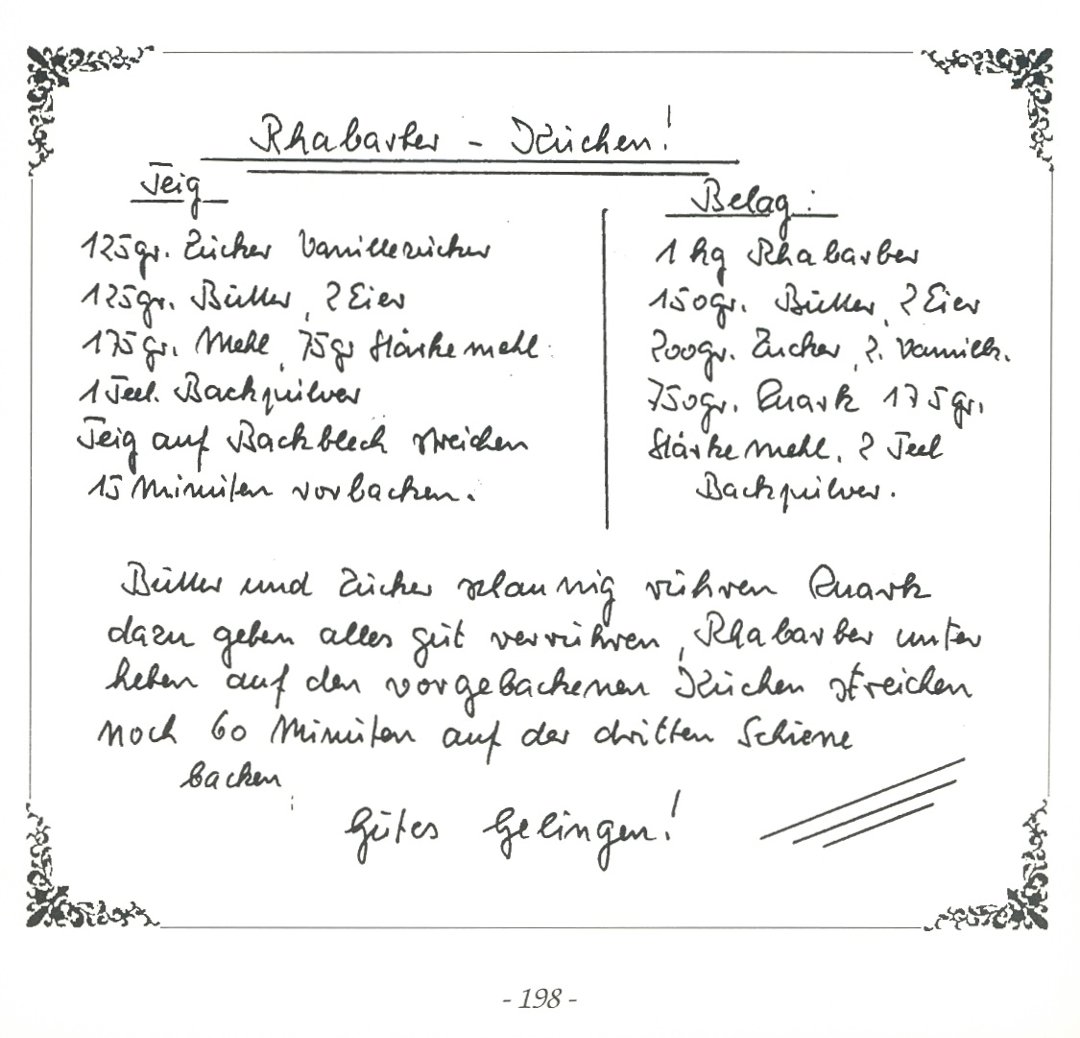 Rhabarber - Kuchen!
Teig
125gr. Zucker Vanillezucker
125gr. Butter, 2 Eier
175gr. Mehl, 75gr Stärkemehl.
1 Teel. Backpulver
Teig auf Backblech streichen
15 Minuten vorbacken.
Belag:
1 kg Rhabarber
150gr. Butter, 2 Eier
200gr. Zucker, 2. Vanillz.
750gr. Quark 175gr.
Stärkemehl, 2 Teel
Backpulver.
Butter und Zucker schaumig rühren Quark
dazu geben alles gut verrühren, Rhabarber unter
heben auf den vorgebackenen Kuchen streichen
noch 60 Minuten auf der dritten Schiene
backen
Gutes Gelingen!
- 198 -